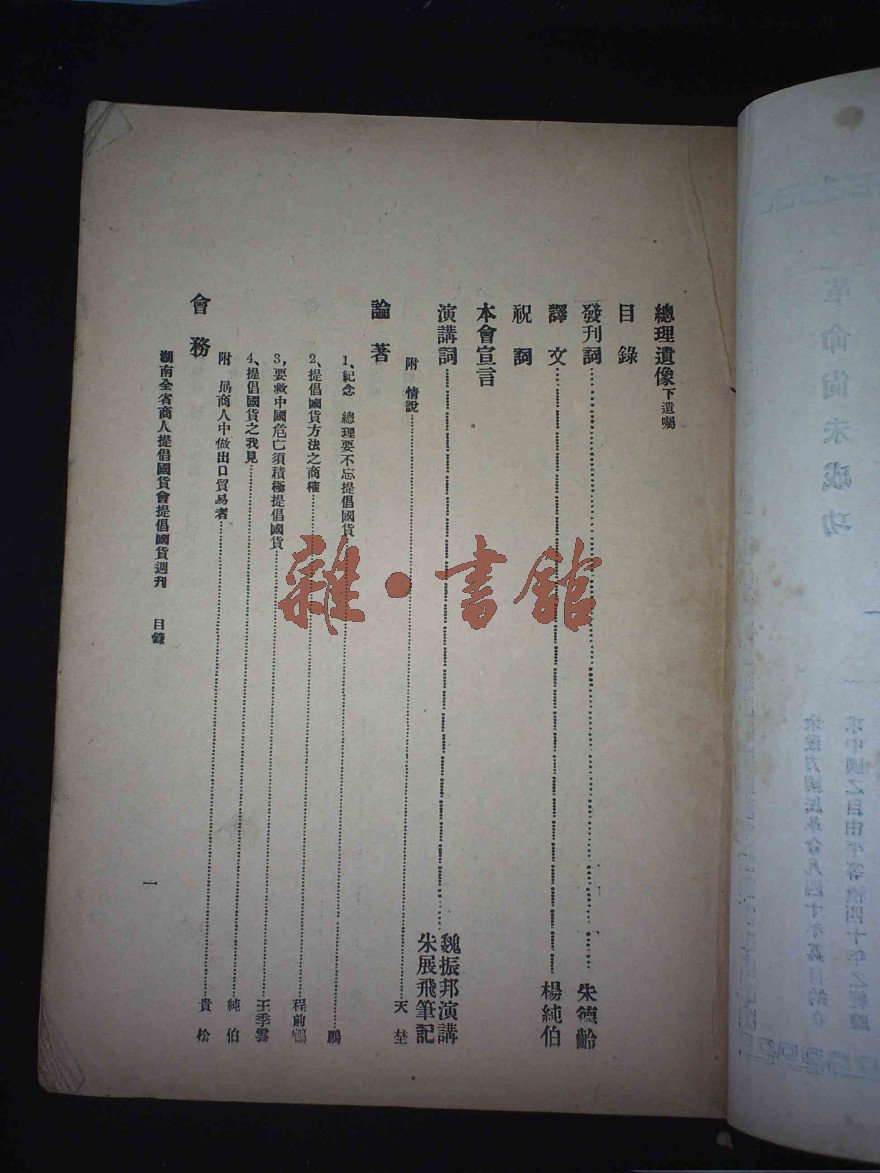 總理遺像下遺囑
目錄
發刊詞……朱德齡
譯文……楊純伯
祝詞
本會宣言
演講詞……魏振邦演講
朱展飛筆記
附 情說……天
論著
1、紀念 總理要不忘提倡國貨……鵬
2、提倡國貨方法之商榷……程前
3,要救中國危亡須積極提倡國貨……王季雲
4、提倡國貨之我見……純伯
附 勗商人中做出口貿易者……貴松
會務
湖南全省商人提倡國貨會提倡國貨週刊 目錄
一
雜·書館
革命尚未成功
余致力國民革命凡四十年其目的在
求中國之自由平等積四十年之經驗